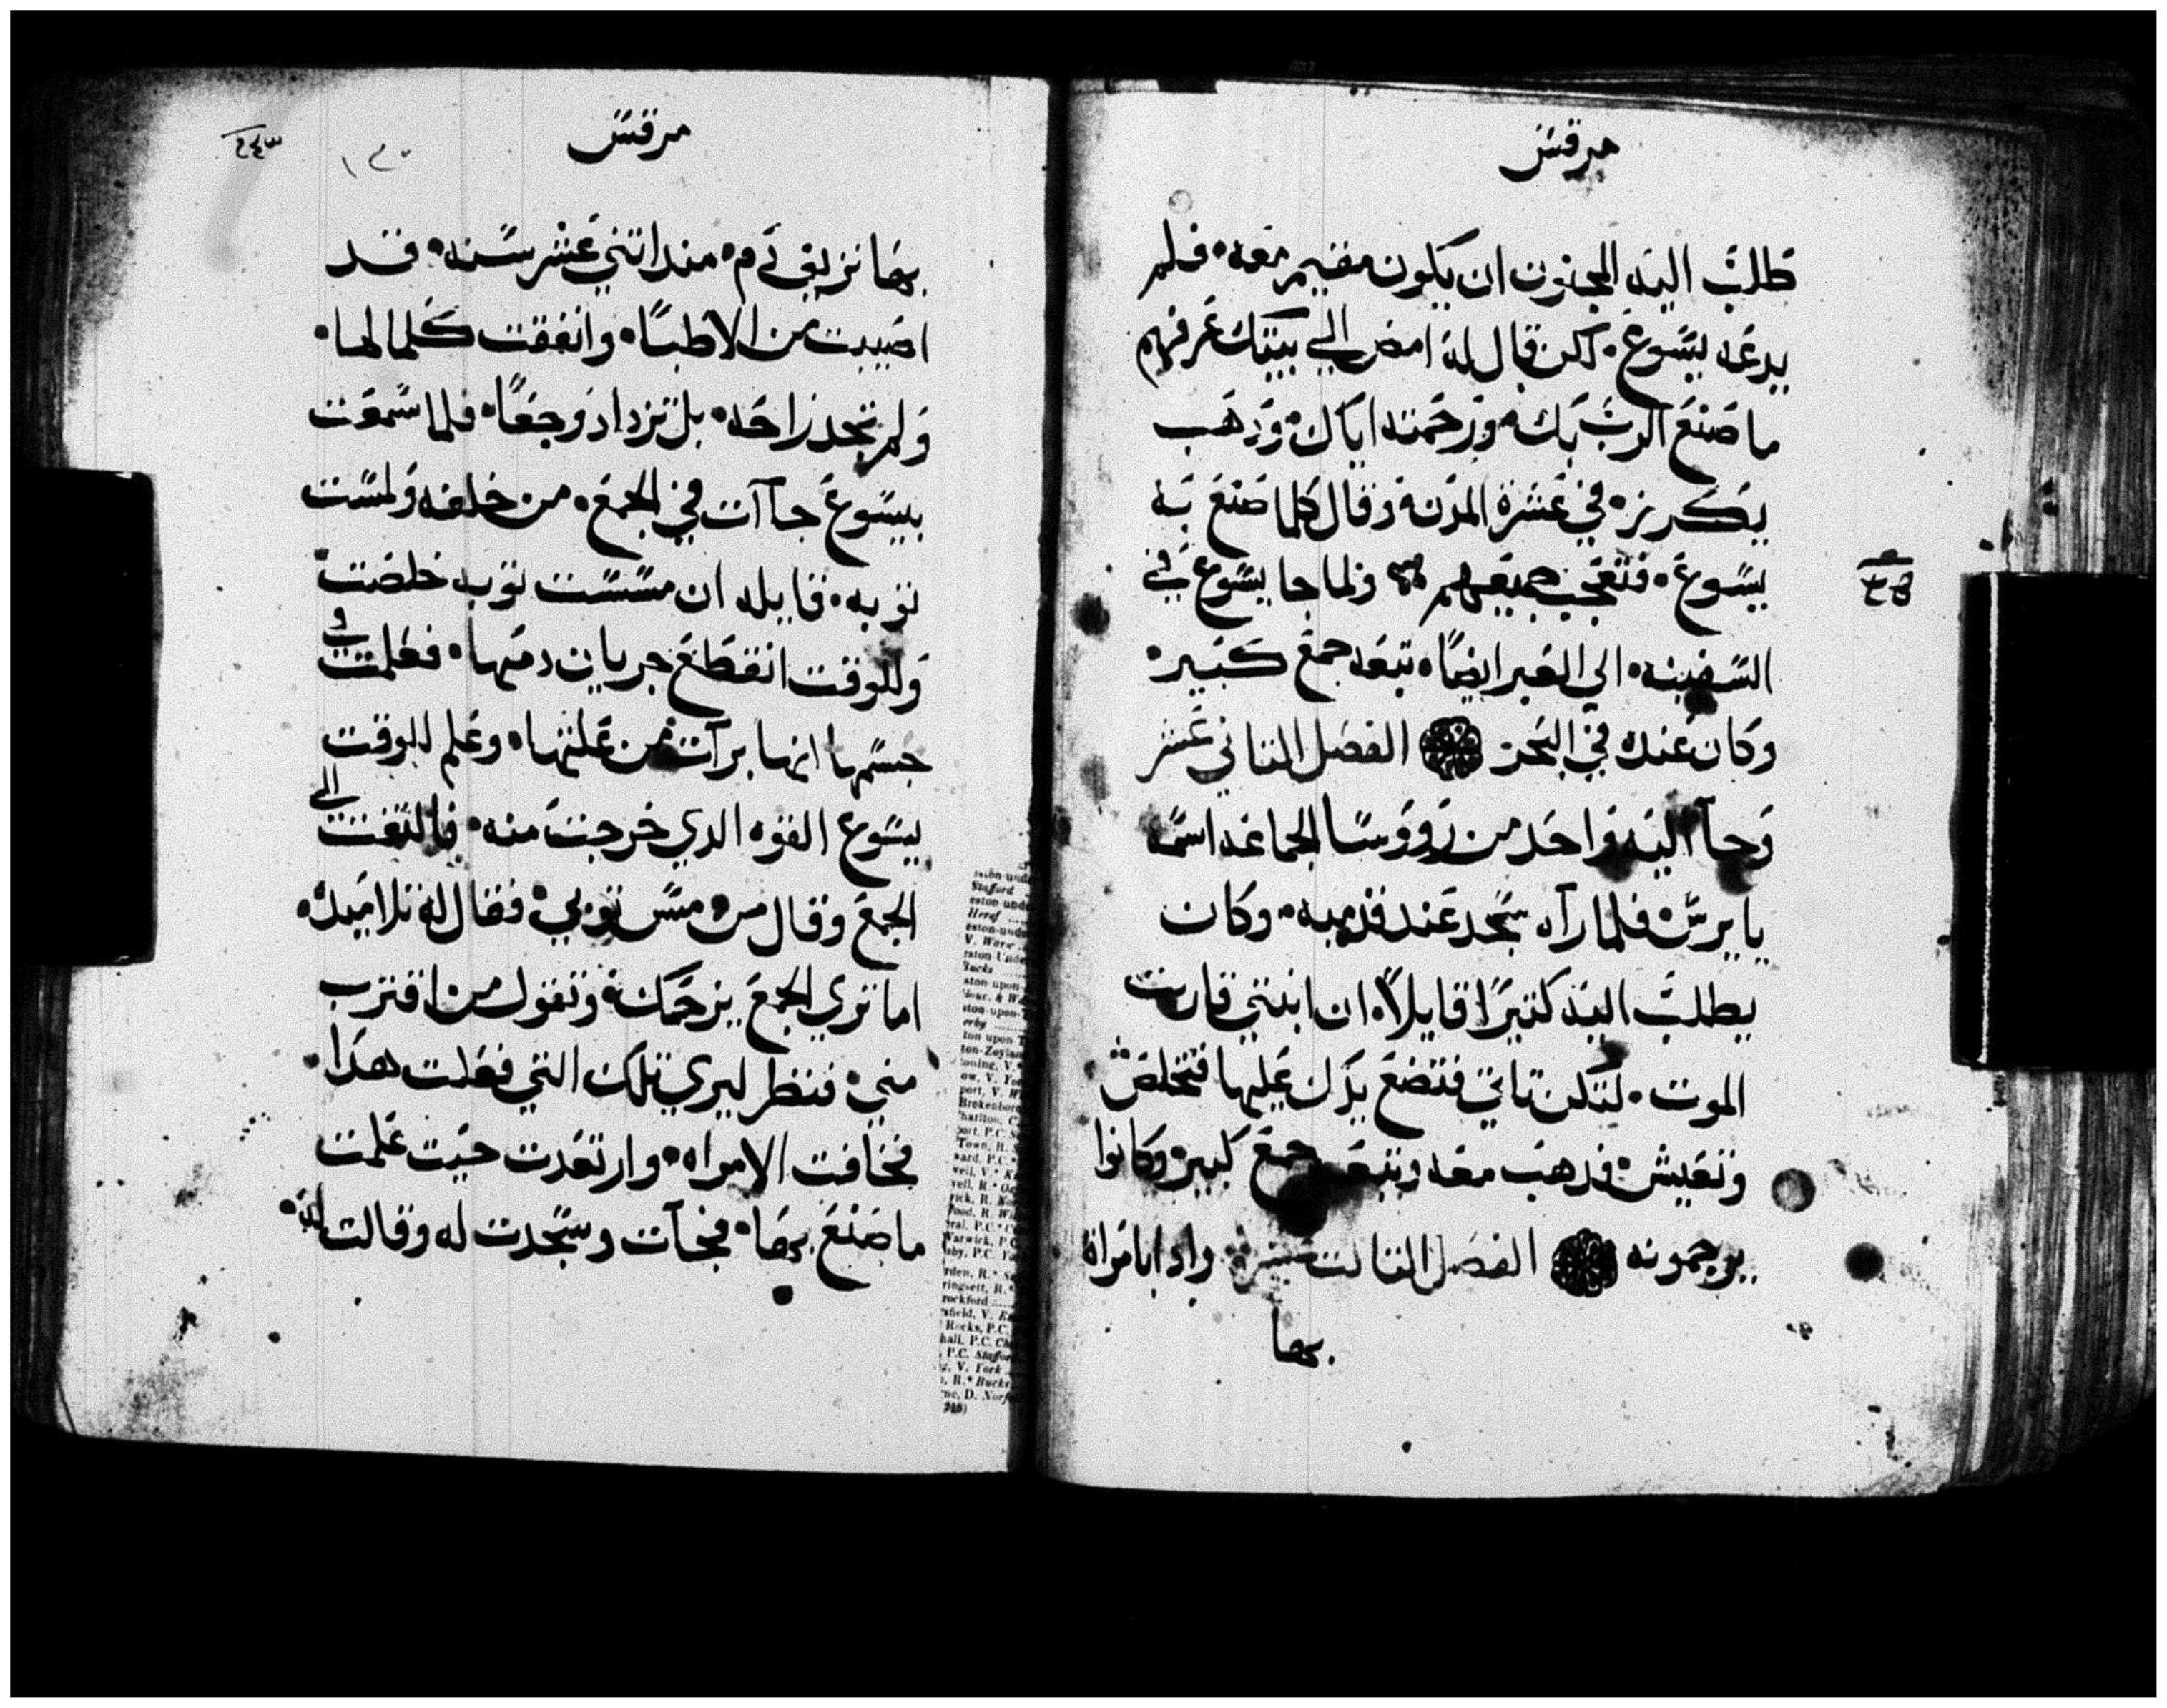 مرقس
طلب اليه المجنون ان يكون مقيم معه فلم
يدعه يسوع لكن قال له امض الي بيتك عرفهم
ما صنع الرب بك ورحمته اياك وذهب
يكرز في عشرة المدن وقال كلما صنع به
يسوع فتعجب جميعهم ولما جا يسوع في
السفينه الي العبر ايضا تبعه جمع كبير
وكان عند في البحر الفصل الثاني عشر
وجآ اليه واحد من رووسا الجماعه اسمه
يايرس فلما رآه سجد عند قدميه وكان
يطلب اليه كثيرا قايلا ان ابنتي قاربت
الموت لكن تاتي فتضع يدك عليها فتخلص
وتعيش فدهب معه وتبعه جمع كبير وكانوا
يزحمونه الفصل الثالث عشر وادا بامراة
بها
مرقس
بها نزيف دم مند اثني عشر سنه قد
اصيبت من الاطبا وانفقت كلما لها
ولم تجد راحه بل تزداد وجعا فلما سمعت
بيسوع جاآت في الجمع من خلفه ولمست
ثوبه قايله ان مسست ثوبه خلصت
وللوقت انقطع جريان دمها فعلمت في
جسمها انها برآت من علتها وعلم للوقت
يسوع القوه الدي خرجت منه فالتفت الي
الجمع وقال من مس ثوبي فقال له تلاميده
اما تري الجمع يزحمك وتقول من اقترب
مني فنظر ليري تلك التي فعلت هدا
فخافت الامراه وارتعدت حيت علمت
ما صنع بها فجآت وسجدت له وقالت له
eston-unde
Stafford
eston-unde
Heref